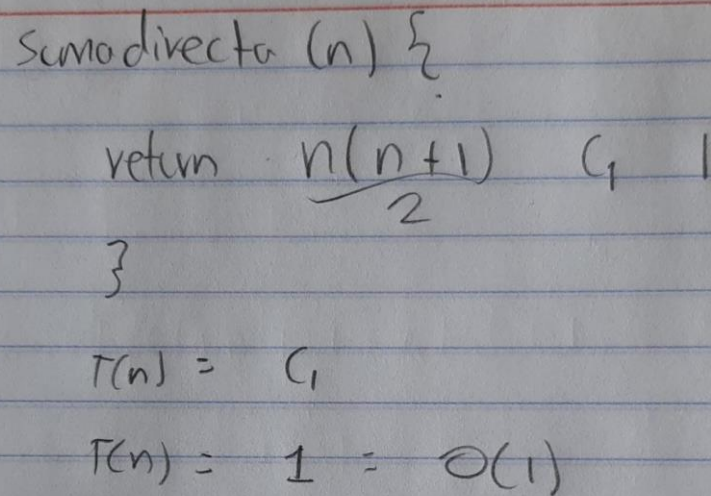 Sumadirecta (n) {
return n(n+1)/2 C₁ 1
}
T(n) = C₁
T(n) = 1 = O(1)